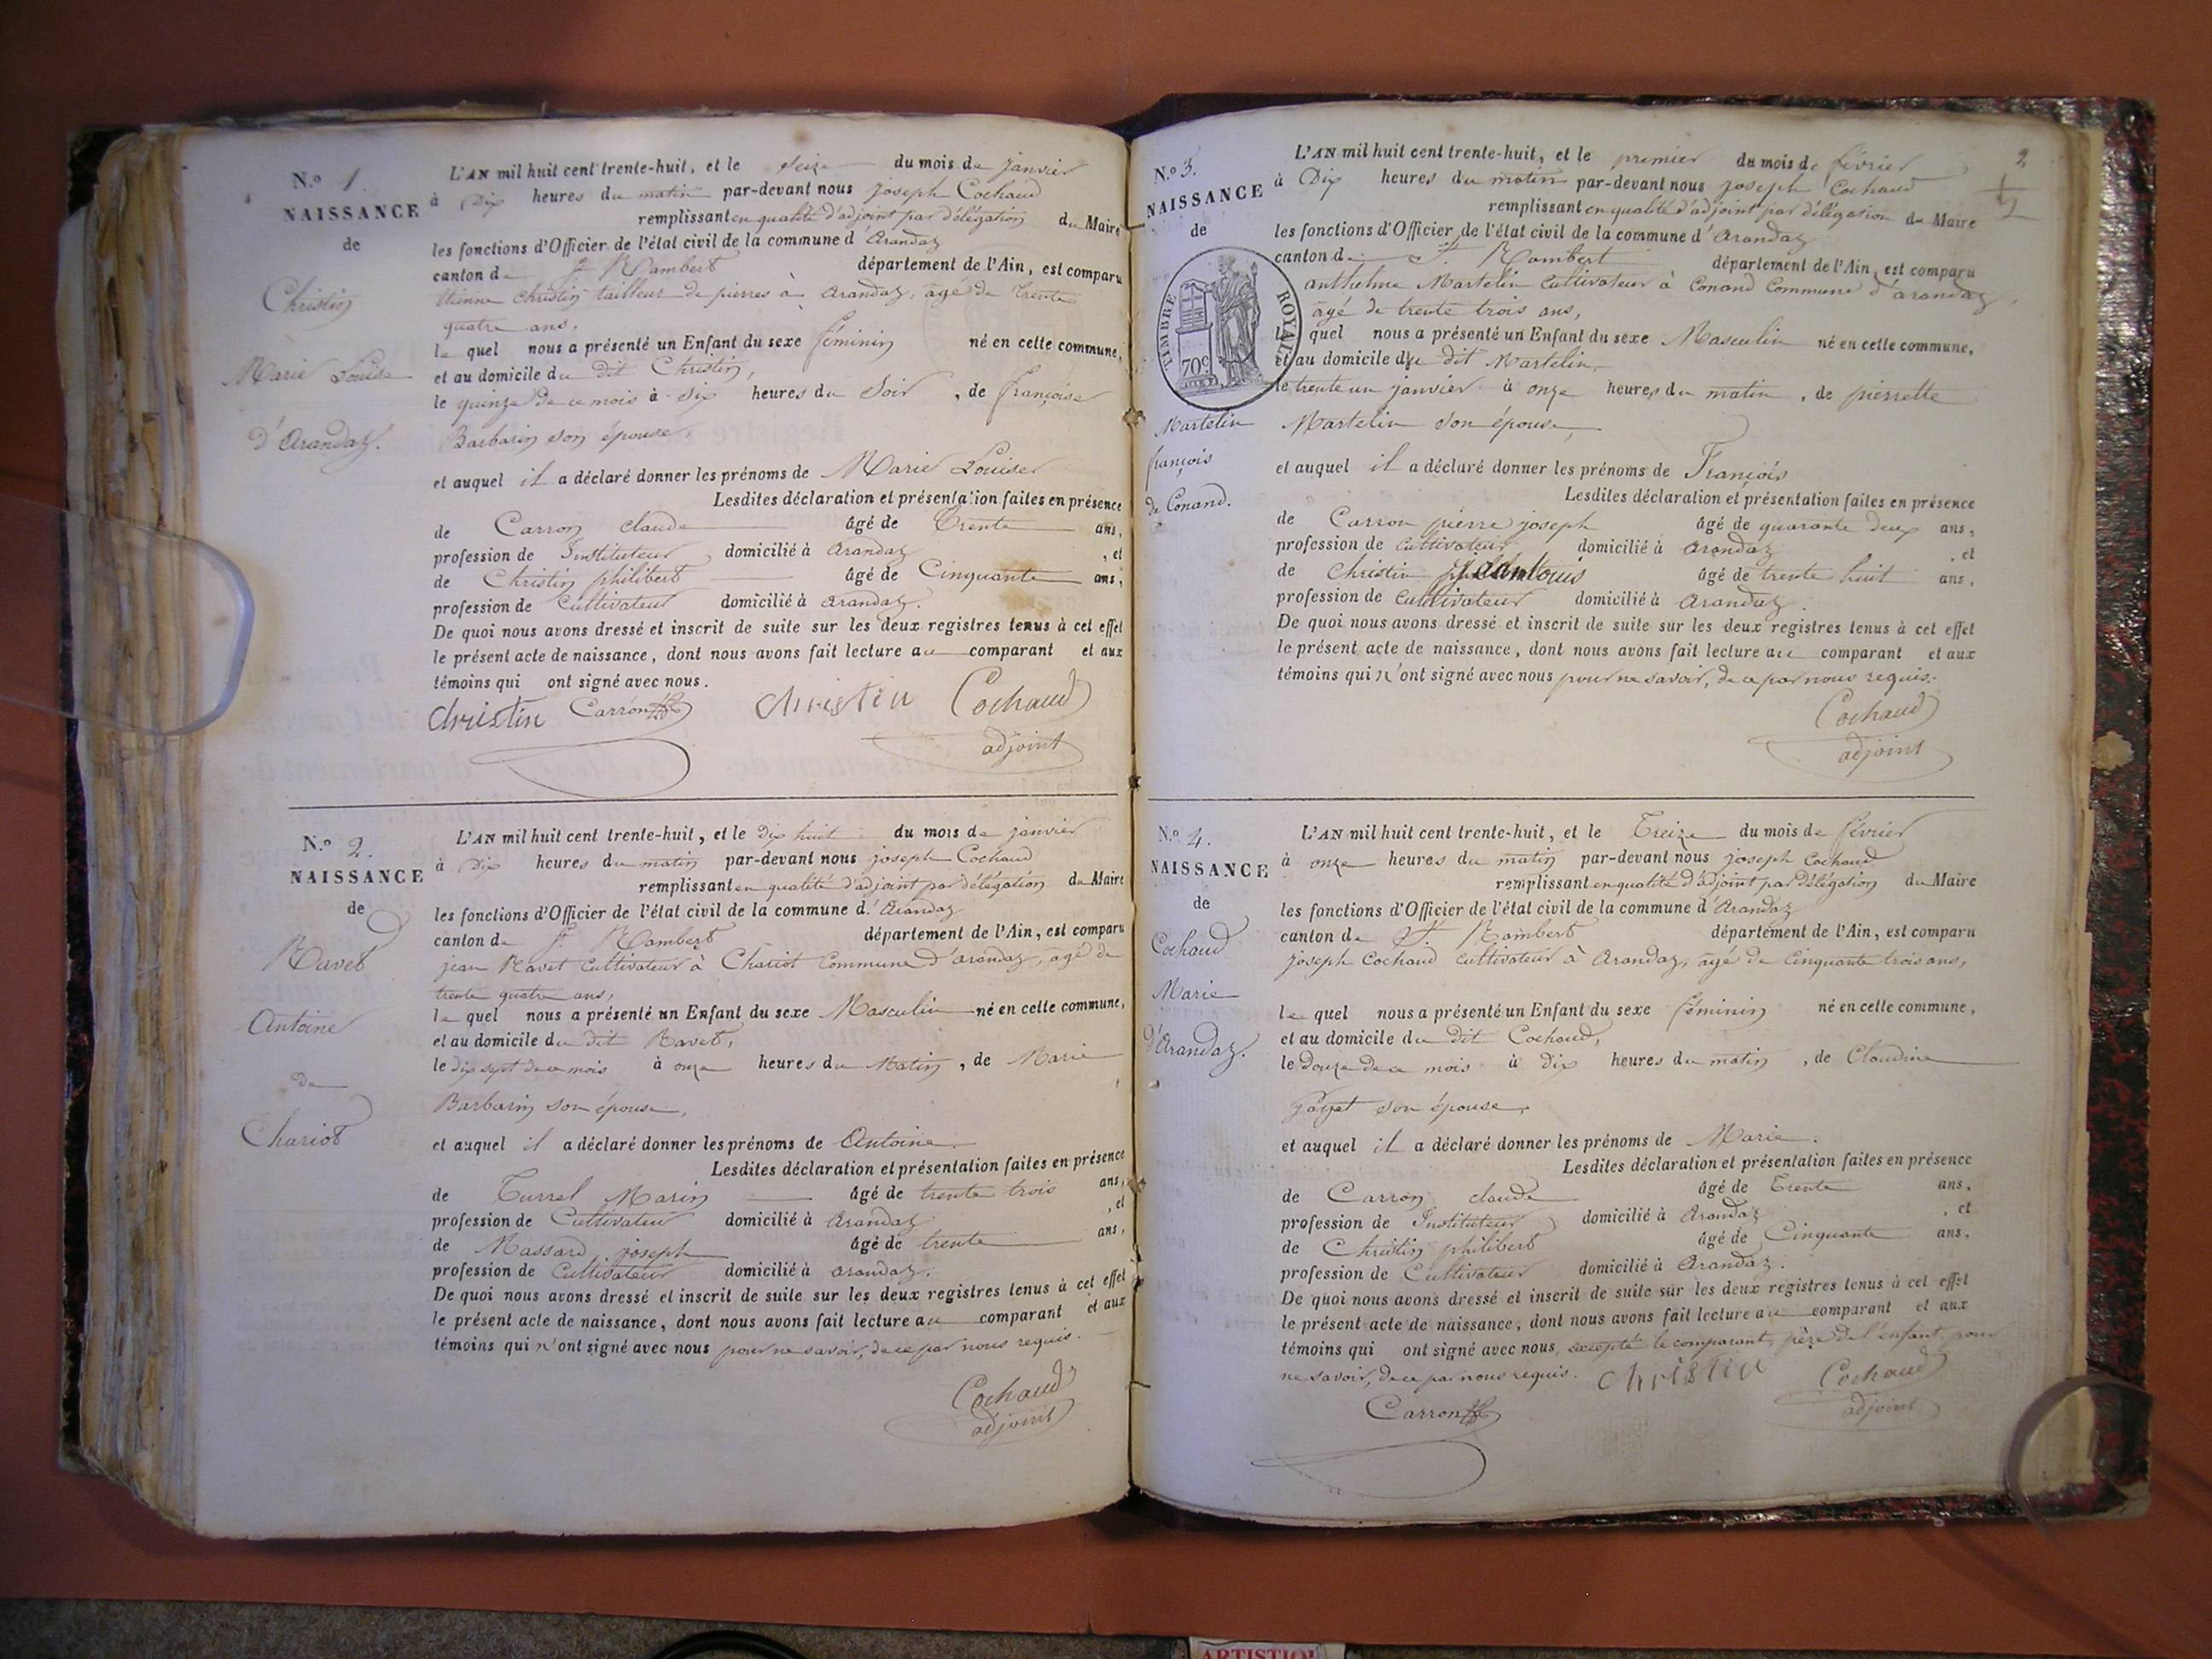 N.o 1.
NAISSANCE
de
Christin
Marie Louise
d'Arandaz.
L'AN mil huit cent trente-huit, et le seize du mois de janvier
à Dix heures du matin par-devant nous joseph Cochaud
remplissant en qualité d'adjoint par délégation du Maire
les fonctions d'Officier de l'état civil de la commune d'Arandaz
canton de St Rambert département de l'Ain, est comparu
étienne Christin tailleur de pierres à Arandaz, âgé de trente
quatre ans,
le quel nous a présenté un Enfant du sexe féminin né en cette commune,
et au domicile du dit Christin,
le quinze de ce mois à six heures du Soir, de françoise
Barbarin son épouse,
et auquel il a déclaré donner les prénoms de Marie Louise
Lesdites déclaration et présentation faites en présence
de Carron claude âgé de Trente ans,
profession de Instituteur domicilié à Arandaz, et
de Christin philibert âgé de Cinquante ans,
profession de Cultivateur domicilié à Arandaz.
De quoi nous avons dressé et inscrit de suite sur les deux registres tenus à cet effet
le présent acte de naissance, dont nous avons fait lecture au comparant et aux
témoins qui ont signé avec nous.
christin Carron christin Cochaud
adjoint
N.o 2.
NAISSANCE
de
Ravet
Antoine
de
Chariot
L'AN mil huit cent trente-huit, et le dix huit du mois de janvier
à Dix heures du matin par-devant nous joseph Cochaud
remplissant en qualité d'adjoint par délégation du Maire
les fonctions d'Officier de l'état civil de la commune d'Arandaz
canton de St Rambert département de l'Ain, est comparu
jean Ravet Cultivateur à Chariot Commune d'arandaz, âgé de
trente quatre ans,
le quel nous a présenté un Enfant du sexe Masculin né en cette commune,
et au domicile du dit Ravet,
le dix sept de ce mois à onze heures du Matin, de Marie
Barbarin son épouse,
et auquel il a déclaré donner les prénoms de Antoine.
Lesdites déclaration et présentation faites en présence
de Turrel Marin âgé de trente trois ans,
profession de Cultivateur domicilié à Arandaz, et
de Massard joseph âgé de trente ans,
profession de Cultivateur domicilié à arandaz.
De quoi nous avons dressé et inscrit de suite sur les deux registres tenus à cet effet
le présent acte de naissance, dont nous avons fait lecture au comparant et aux
témoins qui n'ont signé avec nous pour ne savoir, de ce par nous requis.
Cochaud
adjoint
2
N.o 3.
NAISSANCE
de
TIMBRE ROYAL
70c
Martelin
françois
de Conand.
L'AN mil huit cent trente-huit, et le premier du mois de février
à Dix heures du matin par-devant nous joseph Cochaud
remplissant en qualité d'adjoint par délégation du Maire
les fonctions d'Officier de l'état civil de la commune d'Arandaz
canton de St Rambert département de l'Ain, est comparu
anthelme Martelin Cultivateur à Conand Commune d'arandaz,
âgé de trente trois ans,
le quel nous a présenté un Enfant du sexe Masculin né en cette commune,
et au domicile du dit Martelin,
le trente un janvier à onze heures du matin, de pierrette
Martelin son épouse,
et auquel il a déclaré donner les prénoms de François
Lesdites déclaration et présentation faites en présence
de Carron pierre joseph âgé de quarante deux ans,
profession de Cultivateur domicilié à Arandaz, et
de Christin jeanlouis âgé de trente huit ans,
profession de Cultivateur domicilié à Arandaz.
De quoi nous avons dressé et inscrit de suite sur les deux registres tenus à cet effet
le présent acte de naissance, dont nous avons fait lecture au comparant et aux
témoins qui n'ont signé avec nous pour ne savoir, de ce par nous requis.
Cochaud
adjoint
N.o 4.
NAISSANCE
de
Cochaud
Marie
d'Arandaz.
L'AN mil huit cent trente-huit, et le Treize du mois de février
à onze heures du matin par-devant nous joseph Cochaud
remplissant en qualité d'adjoint par délégation du Maire
les fonctions d'Officier de l'état civil de la commune d'Arandaz
canton de St Rambert département de l'Ain, est comparu
joseph Cochaud Cultivateur à Arandaz, âgé de Cinquante trois ans,
le quel nous a présenté un Enfant du sexe féminin né en cette commune,
et au domicile du dit Cochaud,
le Douze de ce mois à Dix heures du matin, de Claudine
son épouse,
et auquel il a déclaré donner les prénoms de Marie.
Lesdites déclaration et présentation faites en présence
de Carron claude âgé de Trente ans,
profession de Instituteur domicilié à Arandaz, et
de Christin philibert âgé de Cinquante ans,
profession de Cultivateur domicilié à Arandaz.
De quoi nous avons dressé et inscrit de suite sur les deux registres tenus à cet effet
le présent acte de naissance, dont nous avons fait lecture au comparant et aux
témoins qui ont signé avec nous, excepté le comparant, père de l'enfant, pour
ne savoir, de ce par nous requis. christin Cochaud
Carron adjoint